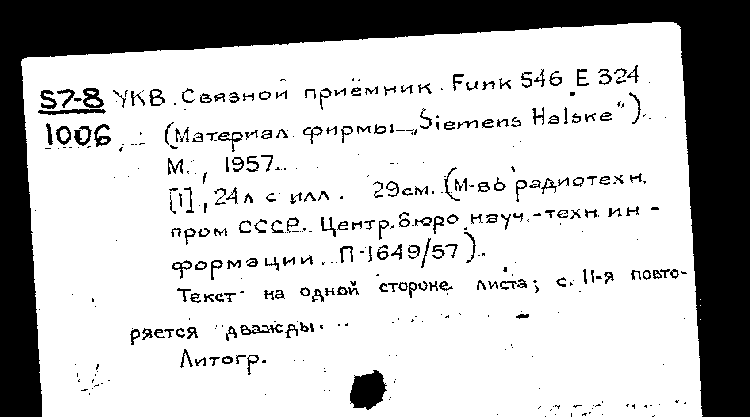 57-8 УКВ. Связной приёмник. Funk 546 E 324
1006 (Материал фирмы „Siemens Halske")
М., 1957.
[1], 24л с илл. 29см. (М-во радиотехн.
пром СССР. Центр. бюро науч.-техн ин-
формации. П-1649/57).
Текст на одной стороне листа; с. 11-я повто-
ряется дважды.
Литогр.